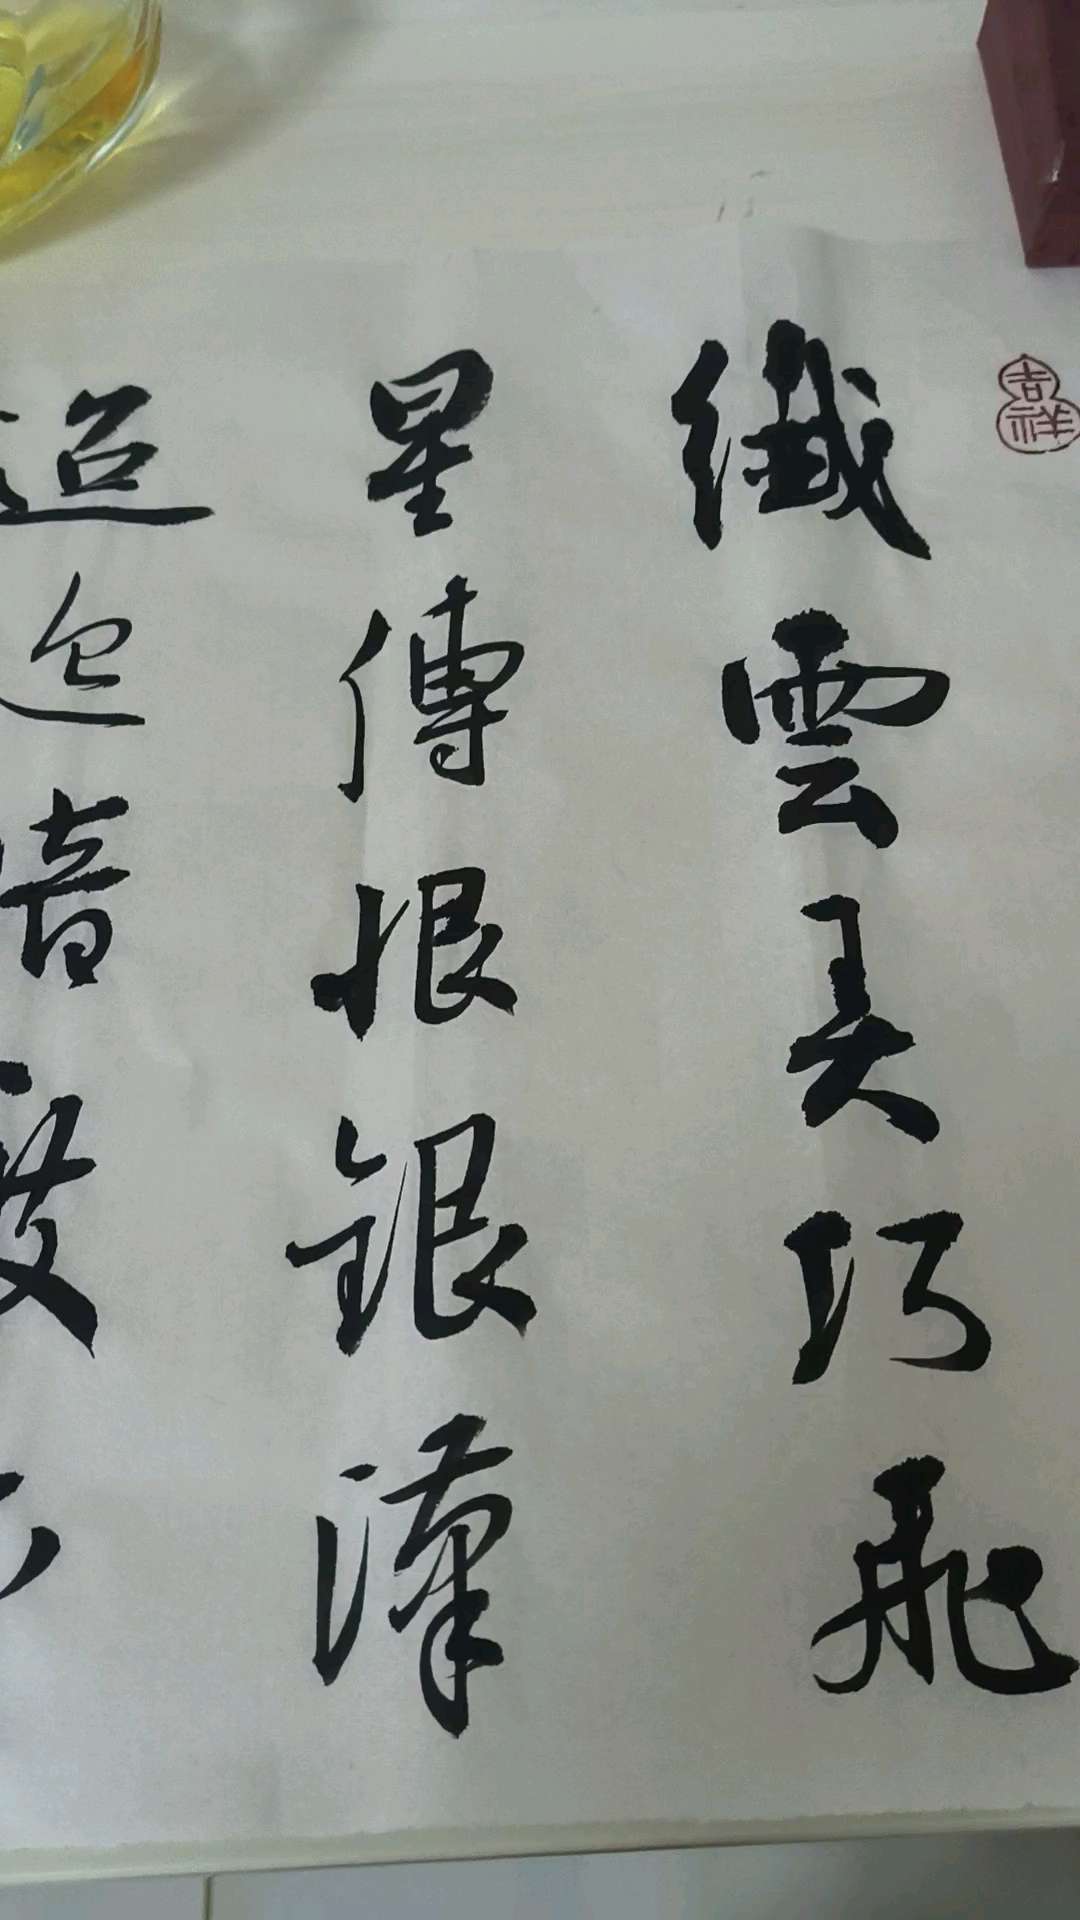 吉祥
纖雲弄巧飛
星傳恨銀漢
迢迢暗度